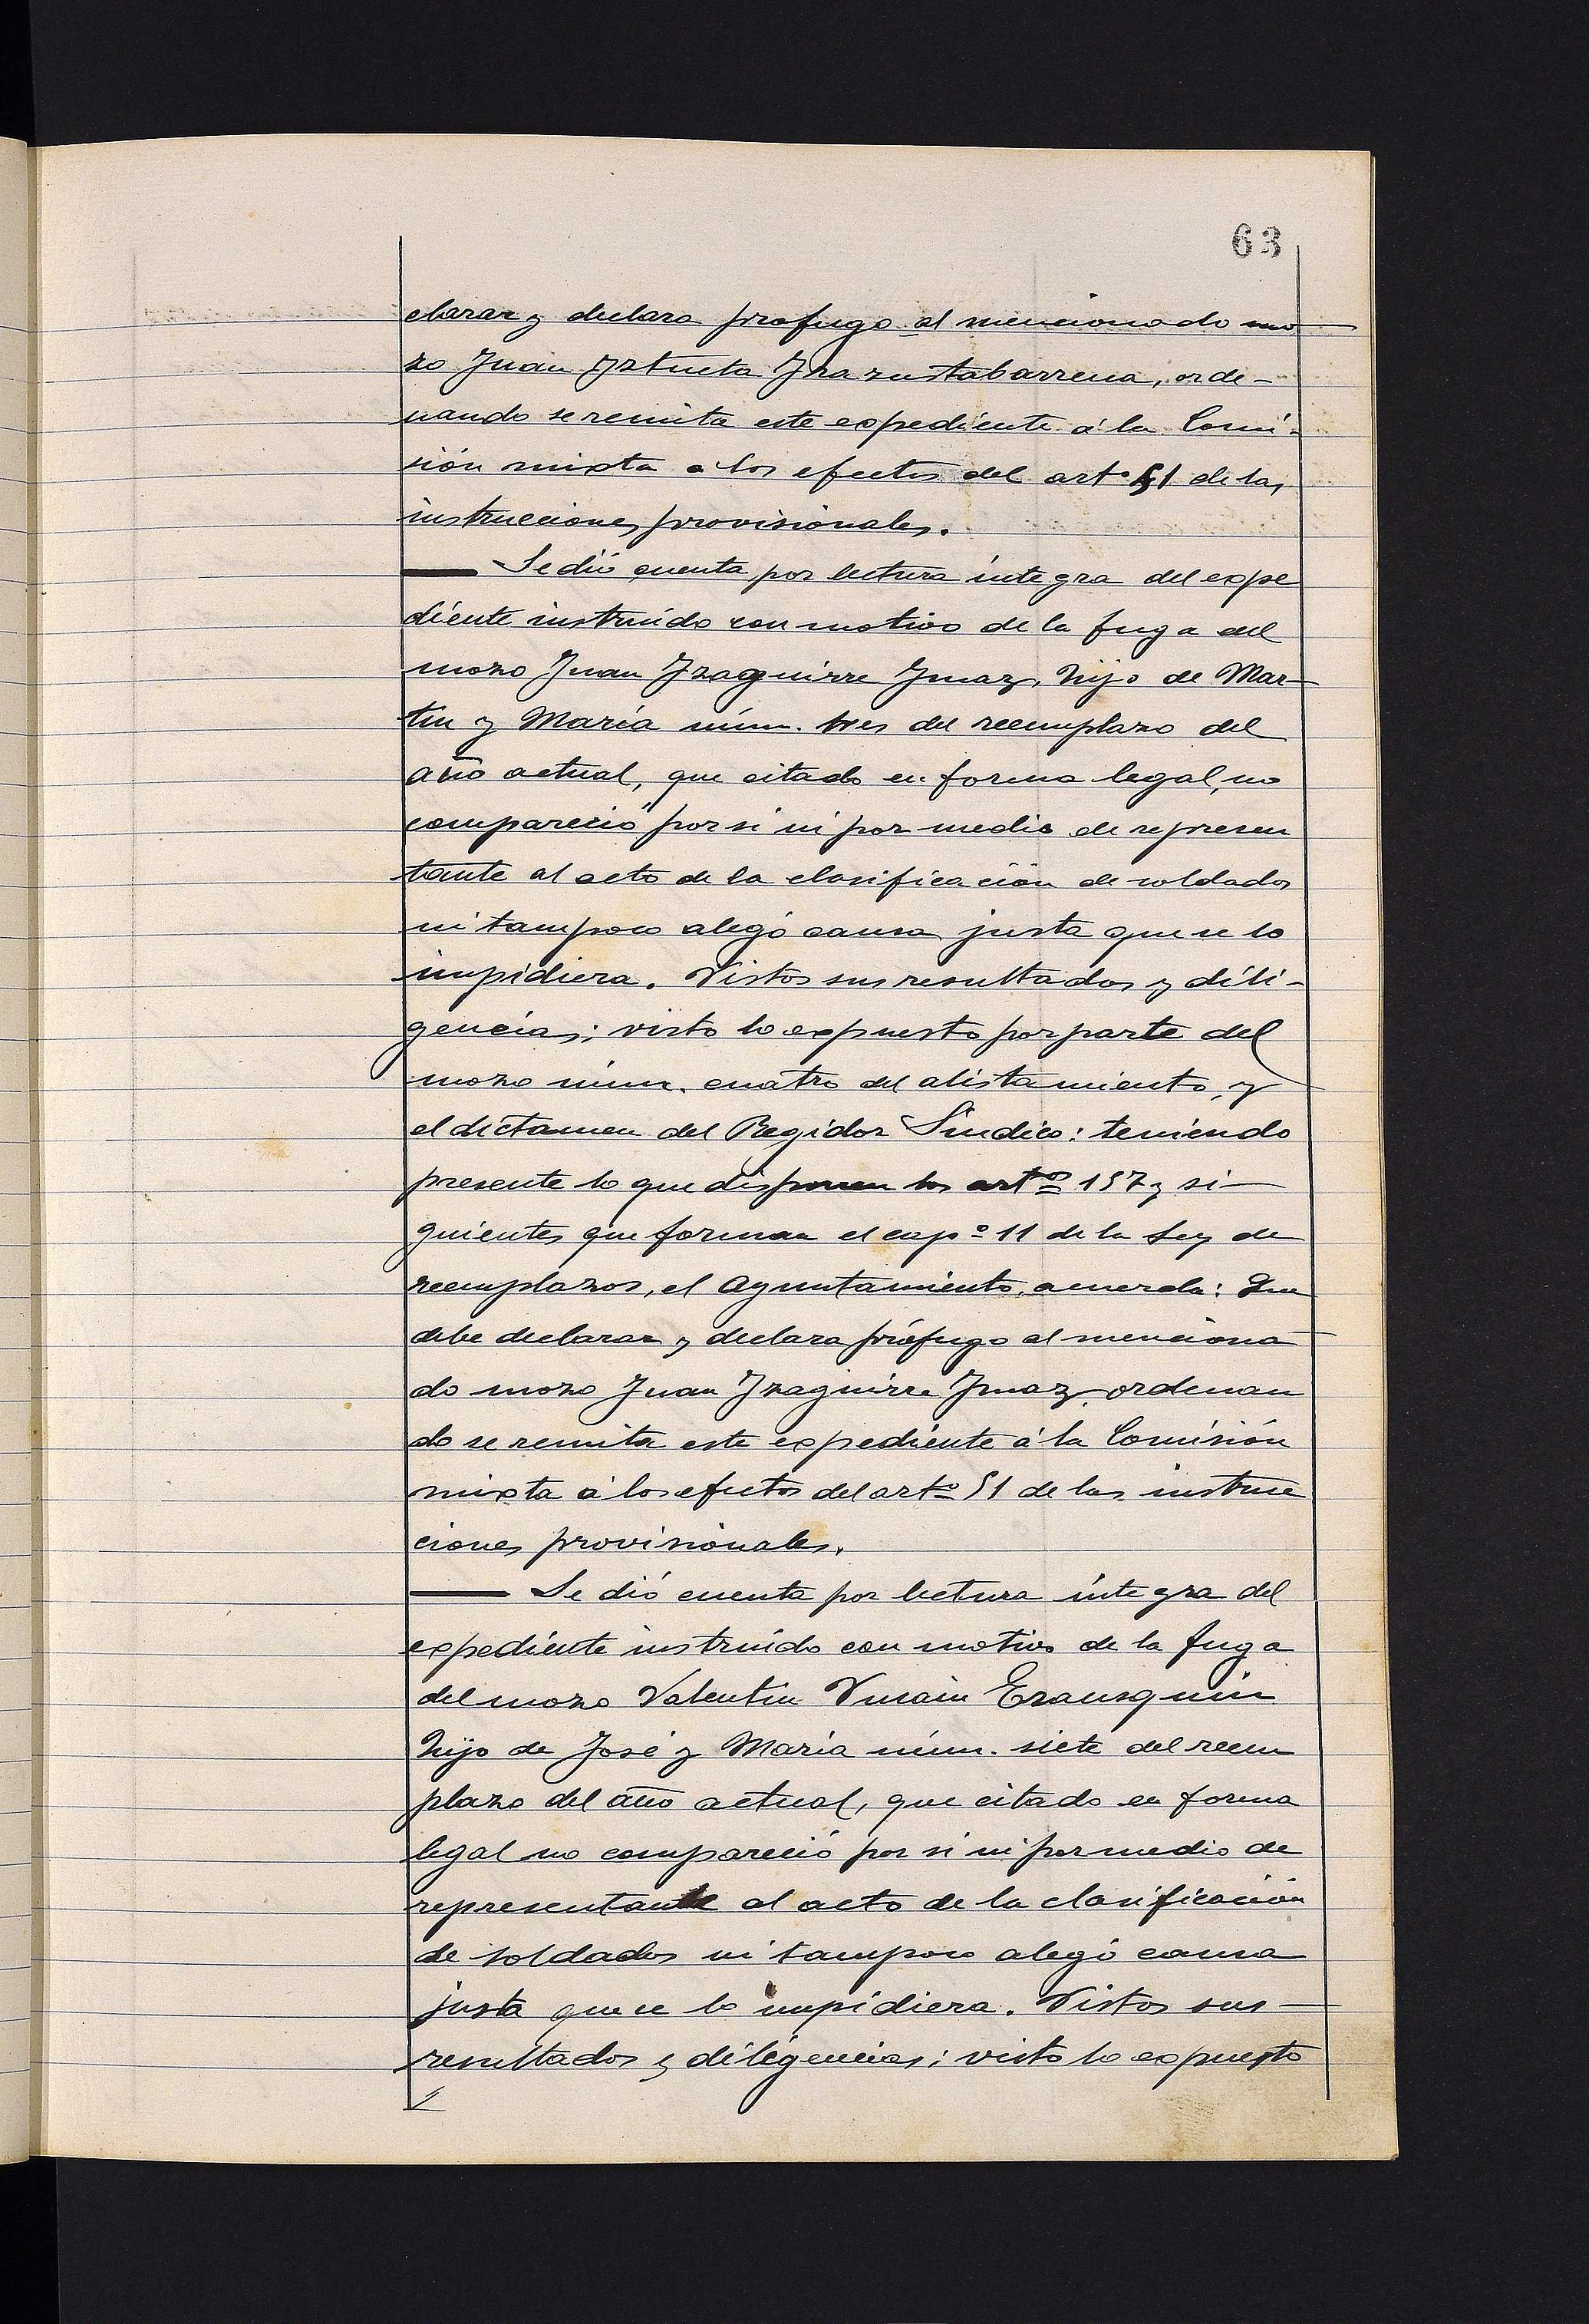 63
clarar y declara profugo al mencionado mo
zo Juan Iztueta Irazustabarrena, orde-
nando se remita este expediente á la Comi-
sión mixta a los efectos del art.º 51 de las
instrucciones provisionales.
Se dió cuenta por lectura íntegra del expe
diente instruido con motivo de la fuga del
mozo Juan Izaguirre Imaz, hijo de Mar-
tin y María núm. tres del reemplazo del
año actual, que citado en forma legal, no
compareció por si ni por medio de represen
tante al acto de la clasificación de soldados
ni tampoco alegó causa justa que se lo
impidiera. Vistos sus resultados y dili-
gencias; visto lo expuesto por parte del
mozo núm. cuatro del alistamiento, y
el dictamen del Regidor Síndico: teniendo
presente lo que disponen los artº 157 y si-
guientes que forman el capº 11 de la Ley de
reemplazos, el Ayuntamiento, acuerda: Que
debe declarar y declara prófugo al menciona
do mozo Juan Izaguirre Imaz, ordenan
do se remita este expediente á la Comisión
mixta á los efectos del artº 51 de las instruc
ciones provisionales.
Se dió cuenta por lectura íntegra del
expediente instruido con motivo de la fuga
del mozo Valentin Vicain Erausquin
hijo de José y María núm. siete del reem
plazo del año actual, que citado en forma
legal no compareció por si ni por medio de
representante al acto de la clasificación
de soldados ni tampoco alegó causa
justa que se lo impidiera. Vistos sus
resultados y diligencias; visto lo expuesto